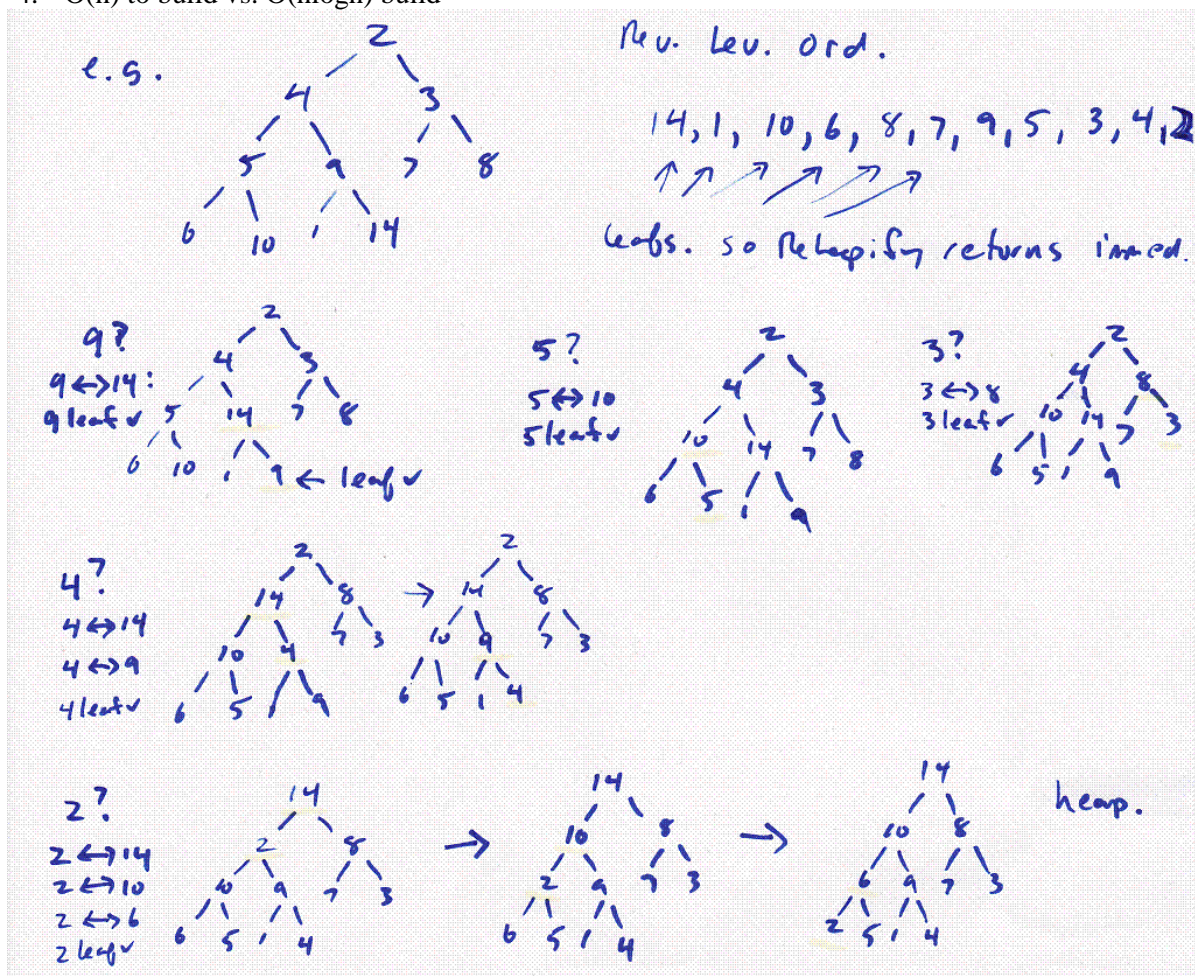 4. O(n) to build vs. O(nlogn) build
e.g.
2
4 3
5 9 7 8
6 10 1 14
Rev. Lev. Ord.
14, 1, 10, 6, 8, 7, 9, 5, 3, 4, 2
leafs. so Reheapify returns immed.
9?
9↔14:
9 leaf ✓
2
4 3
5 14 7 8
6 10 1 9 ← leaf ✓
5?
5↔10
5 leaf ✓
2
4 3
10 14 7 8
6 5 1 9
3?
3↔8
3 leaf ✓
2
4 8
10 14 7 3
6 5 1 9
4?
4↔14
4↔9
4 leaf ✓
2
14 8
10 4 7 3
6 5 1 9
→
2
14 8
10 9 7 3
6 5 1 4
2?
2↔14
2↔10
2↔6
2 leaf ✓
14
2 8
10 9 7 3
6 5 1 4
→
14
10 8
2 9 7 3
6 5 1 4
→
14
10 8
6 9 7 3
2 5 1 4
heap.